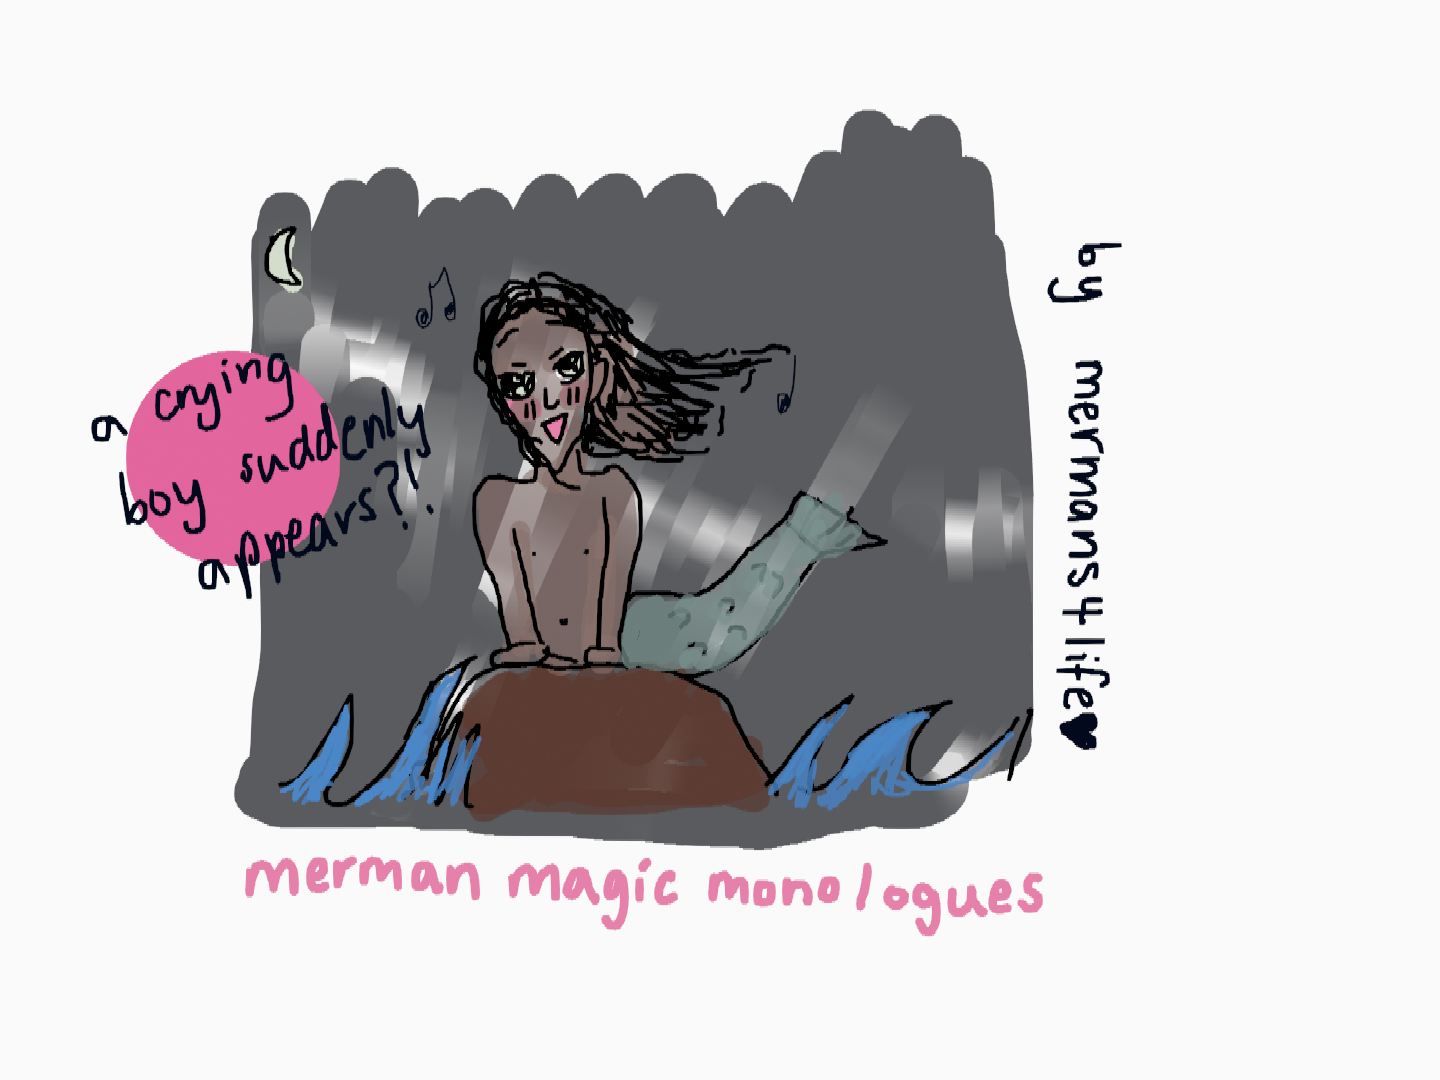 a crying
boy suddenly
appears?!
by mermans4life♥
merman magic monologues